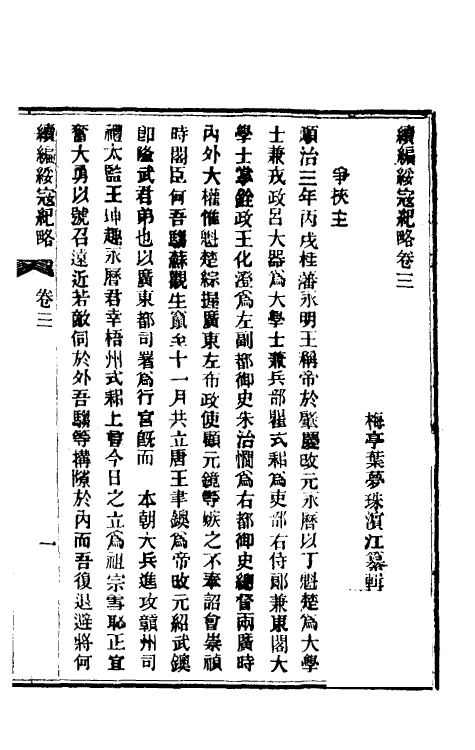 續編綏寇紀略卷三
梅亭葉夢珠濱江纂輯
爭挾主
順治三年丙戌桂藩永明王稱帝於肇慶改元永曆以丁魁楚爲大學
士兼戎政呂大器爲大學士兼兵部瞿式耜爲吏部右侍郎兼東閣大
學士掌銓政王化澄爲左副都御史朱治憪爲右都御史總督兩廣時
內外大權惟魁楚綜握廣東左布政使顧元鏡等嫉之不奉詔會崇禎
時閣臣何吾騶蘇觀生竄至十一月共立唐王聿鐭爲帝改元紹武鐭
卽隆武君弟也以廣東都司署爲行宮旣而 本朝大兵進攻贛州司
禮太監王坤趣永曆君幸梧州式耜上言今日之立爲祖宗雪恥正宜
奮大勇以號召遠近若敵伺於外吾騶等搆隙於內而吾復退避將何
續編綏寇紀略 卷三 一